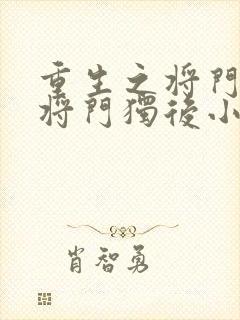 重生之将門
将門獨後小
肖智勇